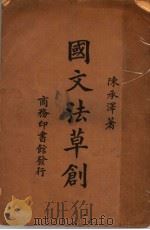 陳承澤著
國文法草創
商務印書館發行